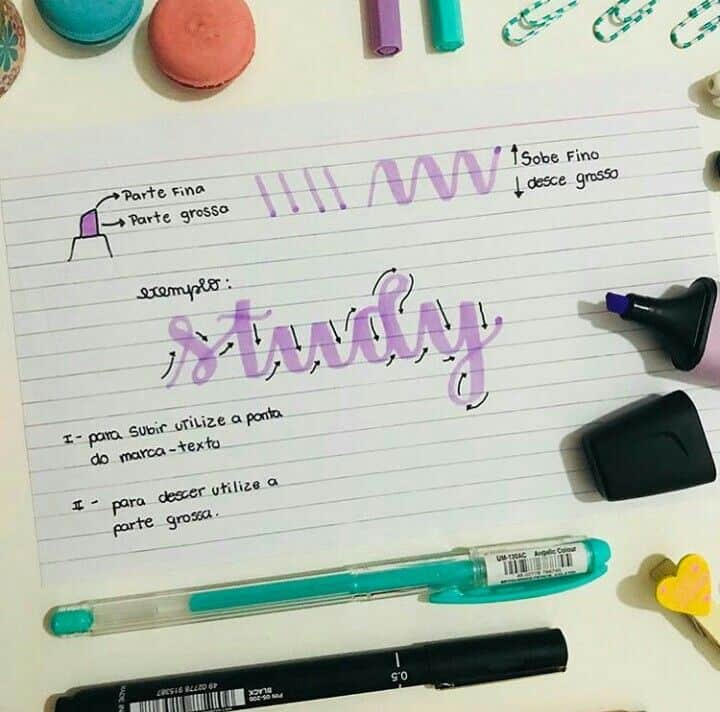 Parte Fina
Parte grossa
↑ Sobe Fino
↓ desce grosso
exemplo:
study
I - para subir utilize a ponta
do marca-texto
II - para descer utilize a
parte grossa.
UM-120AC Angelic Colour
0.5
PIN 05-200
BLACK
49 02778 915387